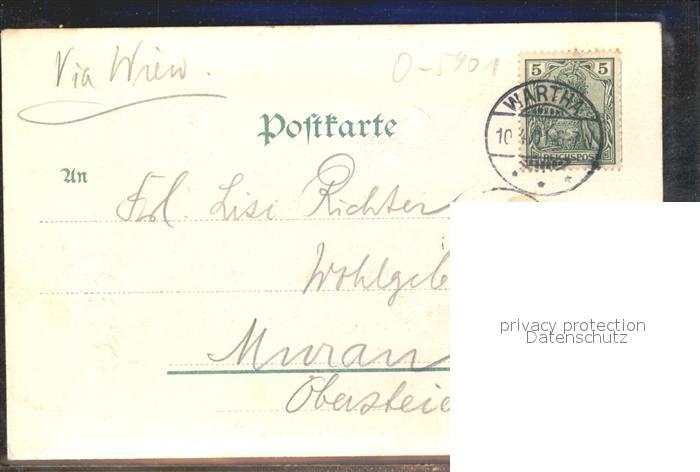 Via Wien.
O-5901
5 5
REICHSPOST
WARTHA
10
Postkarte
An
Frl. Lisi Richter
Wohlgeb
Murau
Obersteie
privacy protection
Datenschutz